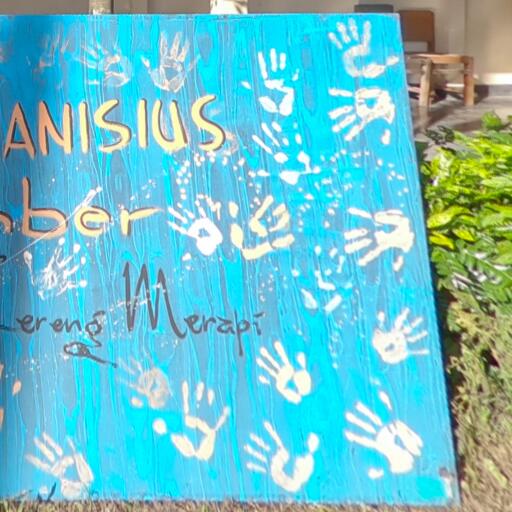 ANISIUS
ber
Lereng Merapi